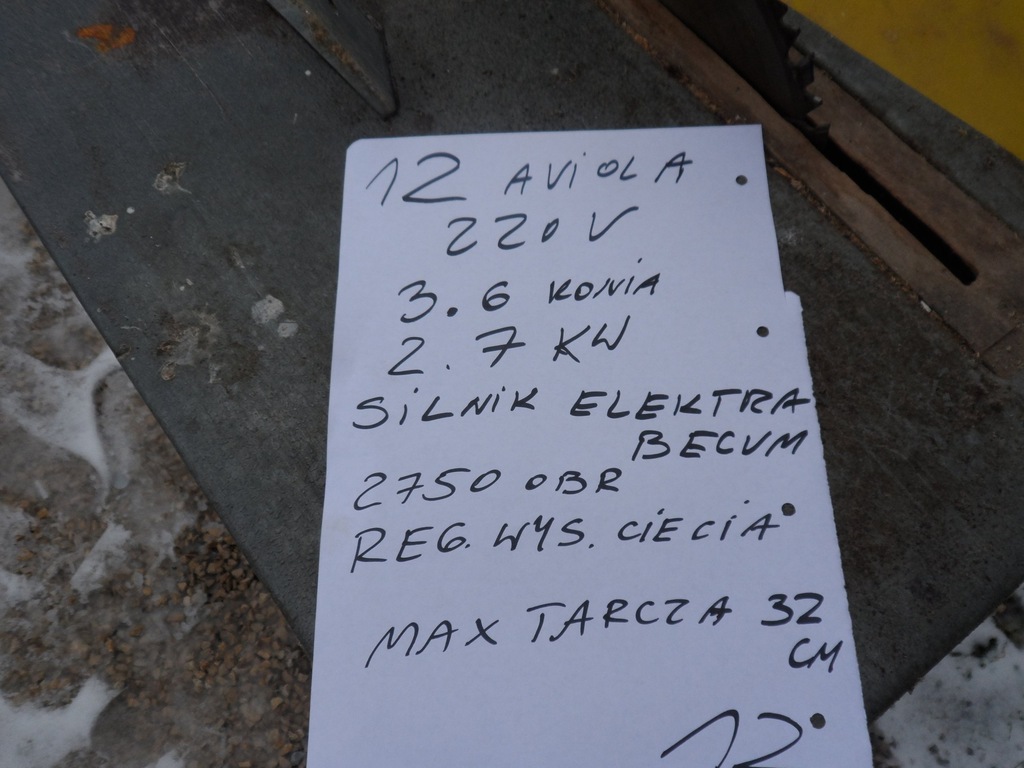 12 AVIOLA
220 V
3.6 KONIA
2.7 KW
SILNIK ELEKTRA
BECUM
2750 OBR
REG. WYS. CIECIA
MAX TARCZA 32
CM
12